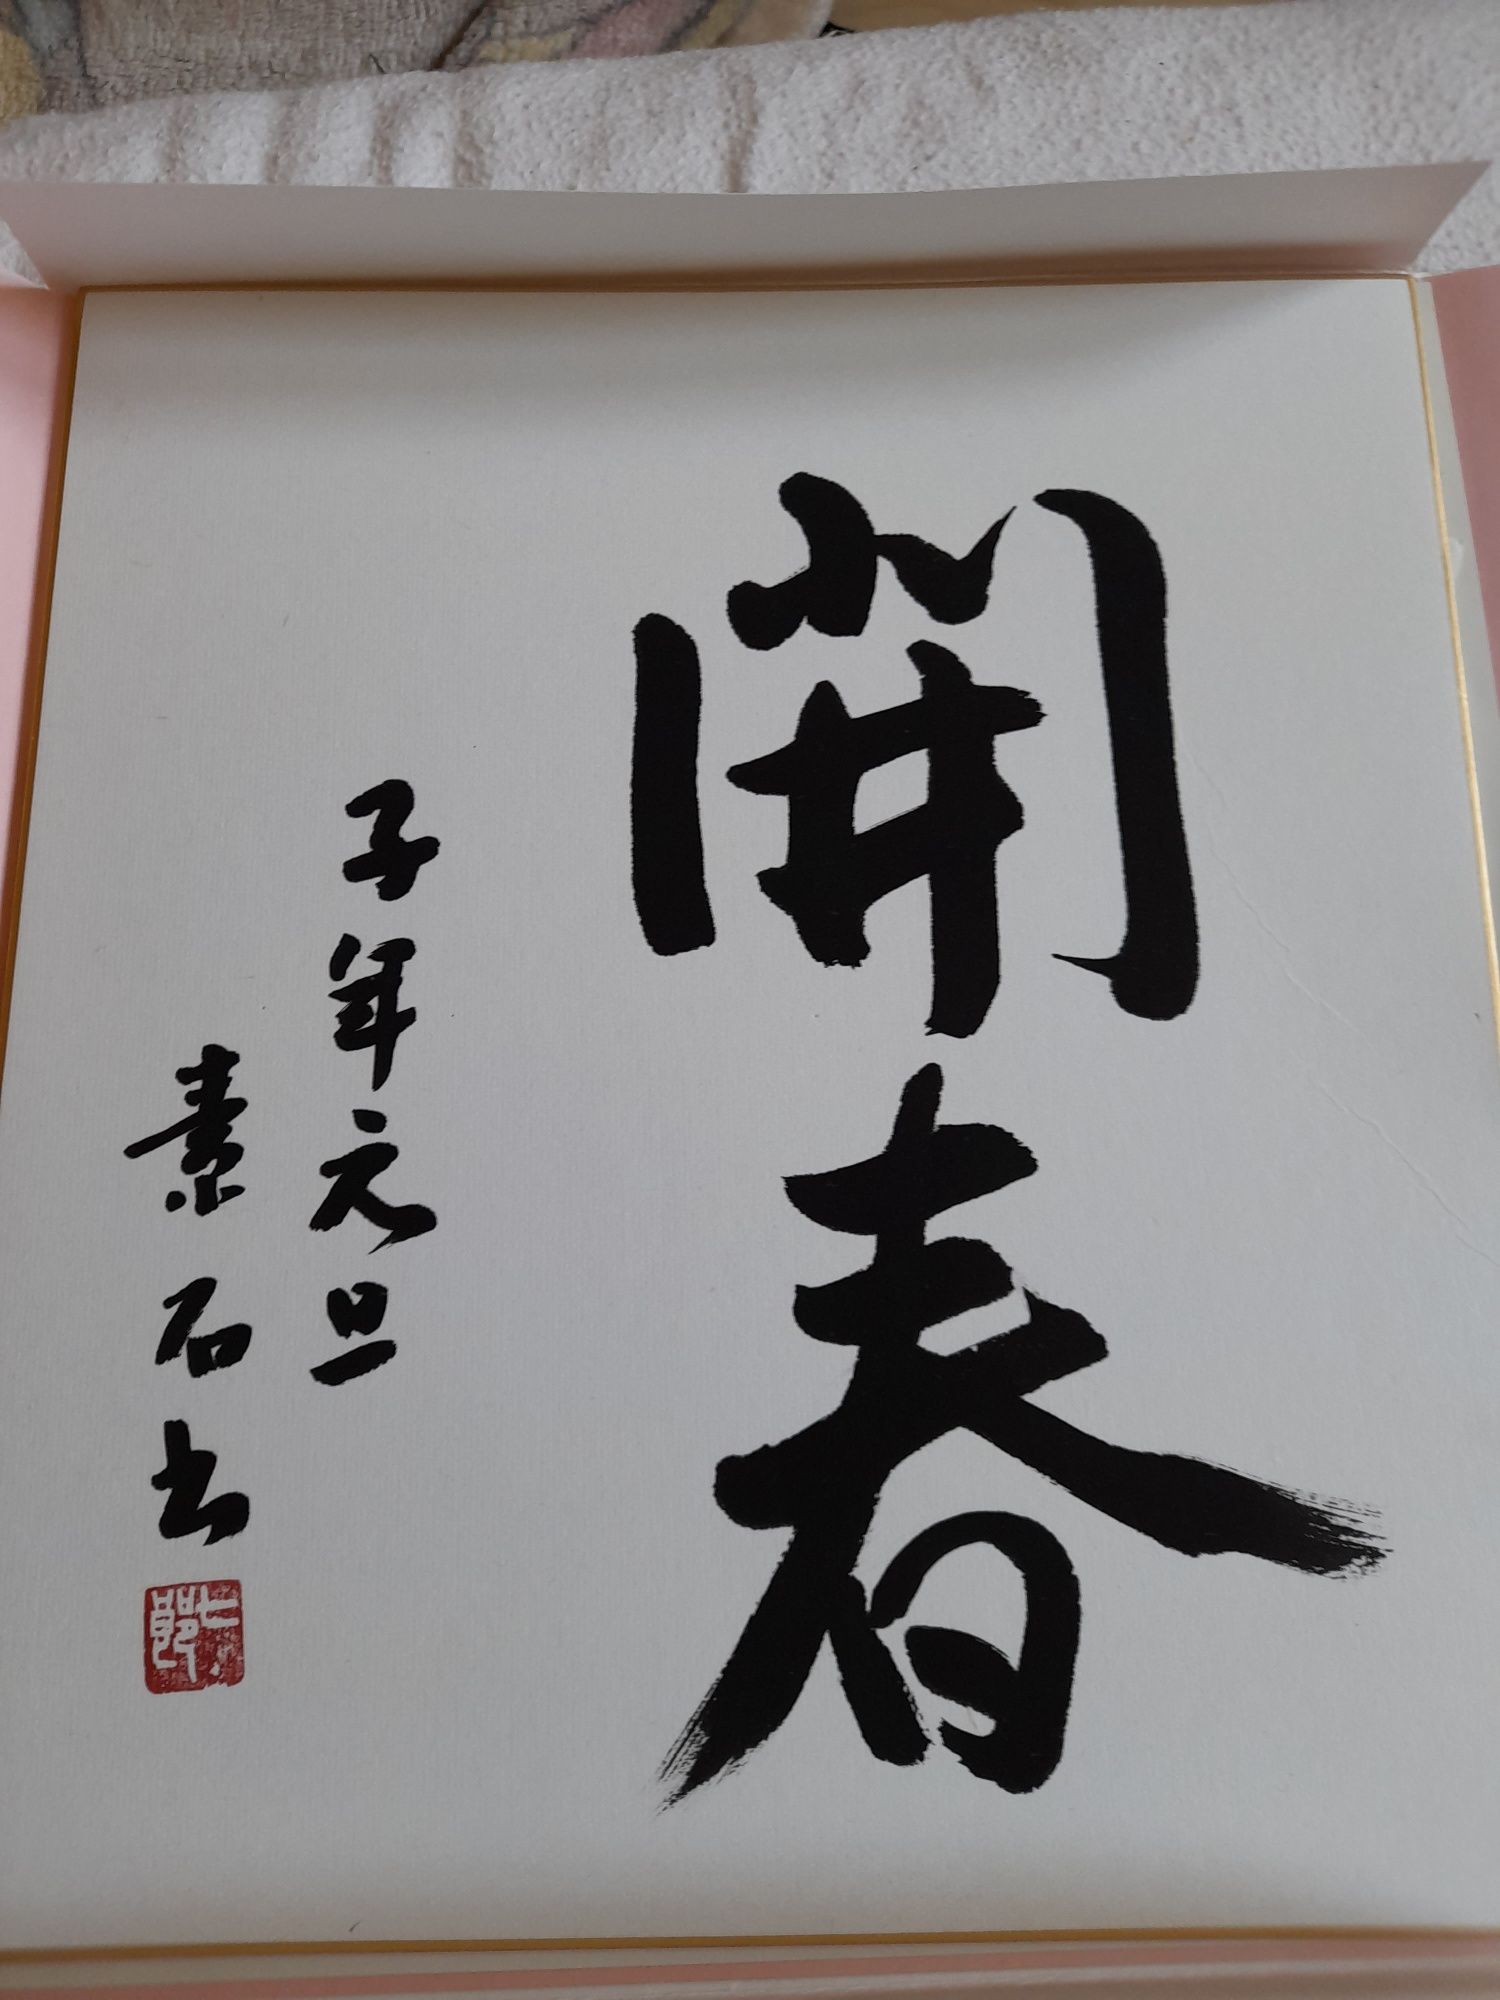 開春
子年元旦
素石書